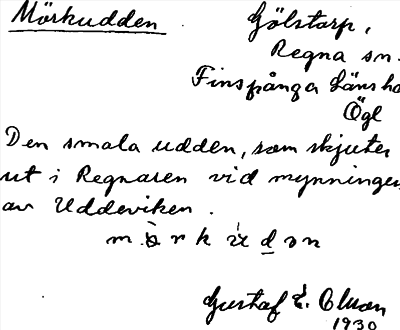 Mörkudden
Gölstorp,
Regna sn.
Finspånga Länsha
Ögl
Den smala udden, som skjuter
ut i Regnaren vid mynningen
av Uddeviken.
Gustaf E.
1930